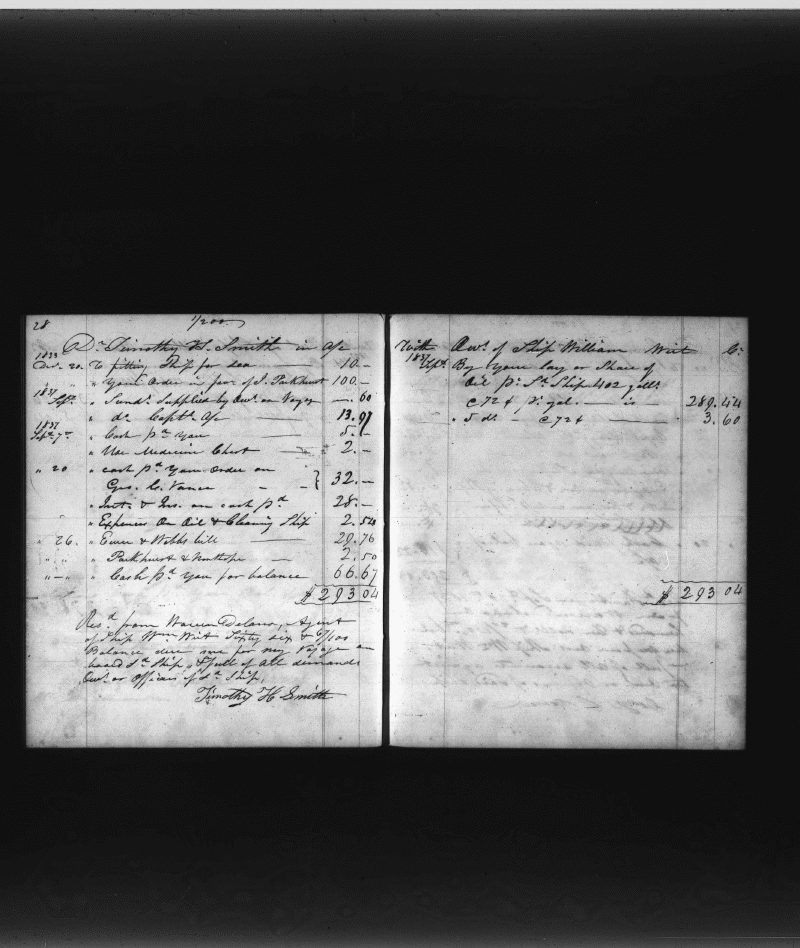 28
1/200
Dr. Timothy H. Smith in a/c
1833
Dec. 20. To fitting Ship for sea 10.—
" Your Order in favr. of S. Parkhurst 100.—
1837
Sept. " Sund. Supplied by Owr. on Voyage —.60
" do. Captn. a/c 13.97
1837
Sept. 7th " Cash pd. you 5.—
" Use Medicine Chest 2.—
" 20 " cash pd. Your Order on
Geo. C. Vance } 32.—
" Int. & Ins. on cash pd. 28.—
" Expenses On Oil & Cleaning Ship 2.54
" 26. " Ewer & Webbs bill 29.76
" " " Parkhurst & Northrope 2.50
" — " " Cash pd. you for balance 66.67
$ 293 04
Recd. from Warren Delano, Agent
of Ship Wm Wirt Sixty six & 67/100
Balance due me for my Voyage on
board sd. Ship, & full of all demands
Owr. or Officers of sd. Ship,
Timothy H Smith
With Owr. of Ship William Wirt Cr.
1837
Sept. By Your lay or Share of
Oil pr. sd. Ship 402 galls.
@ 72 ¢ pr. gal. is 289.44
" 5 do. — @ 72 ¢ 3.60
$ 293 04